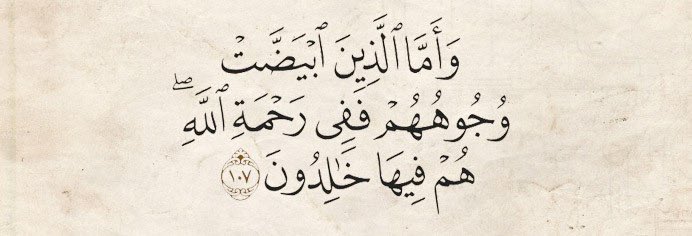 وَأَمَّا ٱلَّذِينَ ٱبۡيَضَّتۡ
وُجُوهُهُمۡ فَفِي رَحۡمَةِ ٱللَّهِۖ
هُمۡ فِيهَا خَٰلِدُونَ ١٠٧